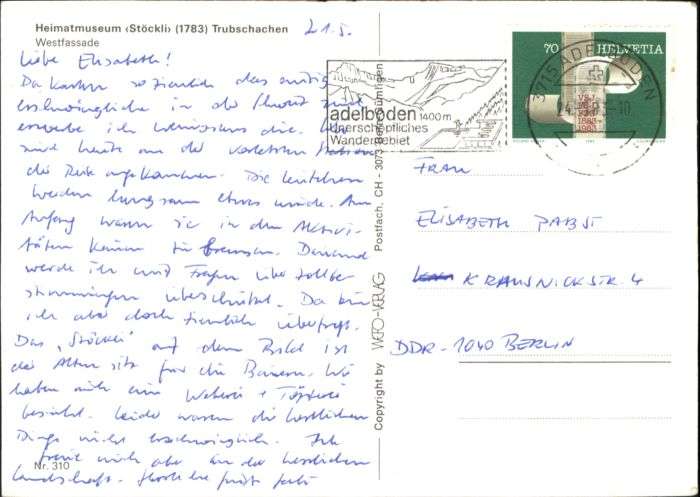 Heimatmuseum ‹Stöckli› (1783) Trubschachen
Westfassade
21.5.
Liebe Elisabeth!
Da Karten so ziemlich das einzig
erschwingliche in der Schweiz sind
erwerbe ich wenigstens die. Wir
sind heute auf der vorletzten Station
der Reise angekommen. Die Leutchen
werden langsam etwas müde. Am
Anfang waren sie in den Aktivi-
täten kaum zu bremsen. Dauernd
werde ich mit Fragen über
überschüttet. Da bin
ich aber doch ziemlich überfragt.
Das „Stöckli" auf dem Bild ist
der Altensitz für die Bauern. Wir
haben auch eine Weberei + Töpferei
besucht. Leider waren die köstlichen
Dinge nicht erschwinglich. Ich
freue mich aber an der herrlichen
Landschaft. Herzliche Grüße
Nr. 310
Copyright by WERO-VERLAG Postfach, CH - 3073 Gümligen
adelboden 1400 m
Unerschöpfliches
Wandergebiet
3715 ADELBODEN
70 HELVETIA
1883
1983
FRAU
ELISABETH PABST
KRAUSNICKSTR. 4
DDR-1040 BERLIN